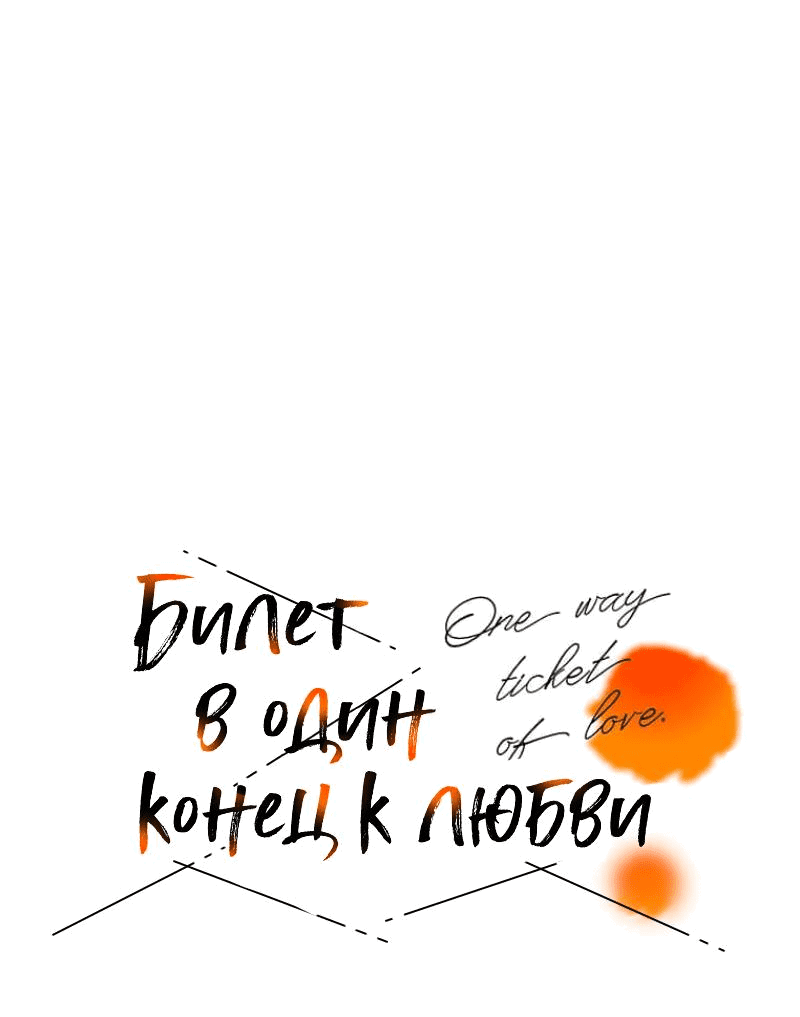 Билет
в один
конец к любви
One way
ticket
of love.